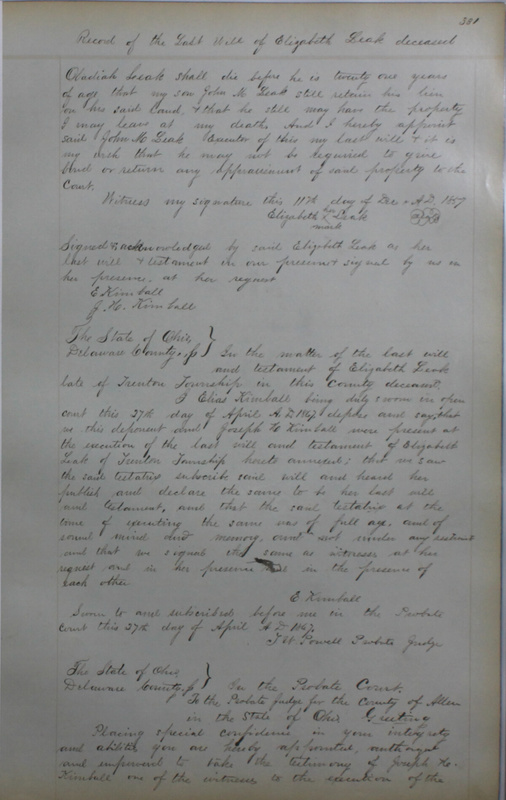 381
Record of the Last Will of Elizabeth Leak deceased
Obadiah Leak shall die before he is twenty one years
of age that my son John M Leak still retain his lien
on his said land, & that he still may have the property
I may leave at my death. And I hereby appoint
said John M Leak Executor of this my last will & it is
my wish that he may not be required to give
bond or return any appraisement of said property to the
Court.
Witness my signature this 11th day of Dec. A.D. 1857
Elizabeth her x Leak
mark
Signed & acknowledged by said Elizabeth Leak as her
last will & testament in our presence & signed by us in
her presence at her request
E Kimball
J. H. Kimball
The State of Ohio
Delaware County, ss } In the matter of the last will
and testament of Elizabeth Leak
late of Trenton Township in this County deceased
I Elias Kimball being duly sworn in open
court this 27th day of April A.D. 1867 deposes and say, that
us this deponent and Joseph H Kimball were present at
the execution of the last will and testament of Elizabeth
Leak of Trenton Township hereto annexed; that we saw
the said testatrix subscribe said will and heard her
publish and declare the same to be her last will
and testament, and that the said testatrix at the
time of executing the same was of full age and of
sound mind and memory and not under any restraint
and that we signed the same as witnesses at her
request and in her presence and in the presence of
each other
E Kimball
Sworn to and subscribed before me in the Probate
court this 27th day of April A.D. 1867.
T W Powell Probate Judge
The State of Ohio
Delaware County, ss } In the Probate Court.
To the Probate Judge for the County of Allen
in the State of Ohio Greeting
Placing special confidence in your integrity
and abilities you are hereby appointed, authorized
and empowered to take the testimony of Joseph H.
Kimball one of the witnesses to the execution of the